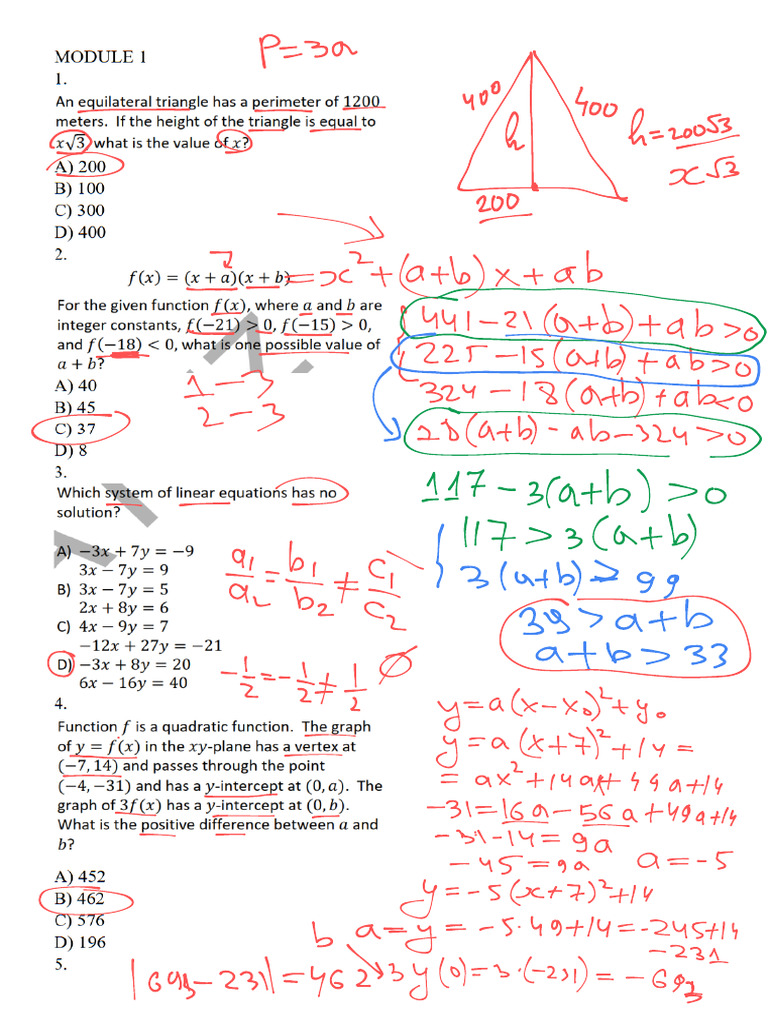 MODULE 1
P=3a
1.
An equilateral triangle has a perimeter of 1200
meters. If the height of the triangle is equal to
x√3 what is the value of x?
A) 200
B) 100
C) 300
D) 400
400
400
h
200
h=200√3
x√3
2.
f(x) = (x + a)(x + b)=x²+(a+b)x+ab
For the given function f(x), where a and b are
integer constants, f(−21) > 0, f(−15) > 0,
and f(−18) < 0, what is one possible value of
a + b?
A) 40
B) 45
C) 37
D) 8
1−3
2−3
441−21(a+b)+ab>0
225−15(a+b)+ab>0
324−18(a+b)+ab<0
18(a+b)-ab-324>0
117−3(a+b)>0
117>3(a+b)
3(a+b)>99
39>a+b
a+b>33
3.
Which system of linear equations has no
solution?
A) −3x + 7y = −9
3x − 7y = 9
B) 3x − 7y = 5
2x + 8y = 6
C) 4x − 9y = 7
−12x + 27y = −21
D) −3x + 8y = 20
6x − 16y = 40
a₁/a₂=b₁/b₂≠c₁/c₂
−1/2=−1/2≠1/2 ∅
4.
Function f is a quadratic function. The graph
of y = f(x) in the xy-plane has a vertex at
(−7, 14) and passes through the point
(−4, −31) and has a y-intercept at (0, a). The
graph of 3f(x) has a y-intercept at (0, b).
What is the positive difference between a and
b?
A) 452
B) 462
C) 576
D) 196
y=a(x−x₀)²+y₀
y=a(x+7)²+14=
=ax²+14ax+49a+14
−31=16a−56a+49a+14
−31−14=9a
−45=9a a=−5
y=−5(x+7)²+14
a=y=−5·49+14=−245+14
−231
b
3y(0)=3·(−231)=−693
|693−231|=462
5.